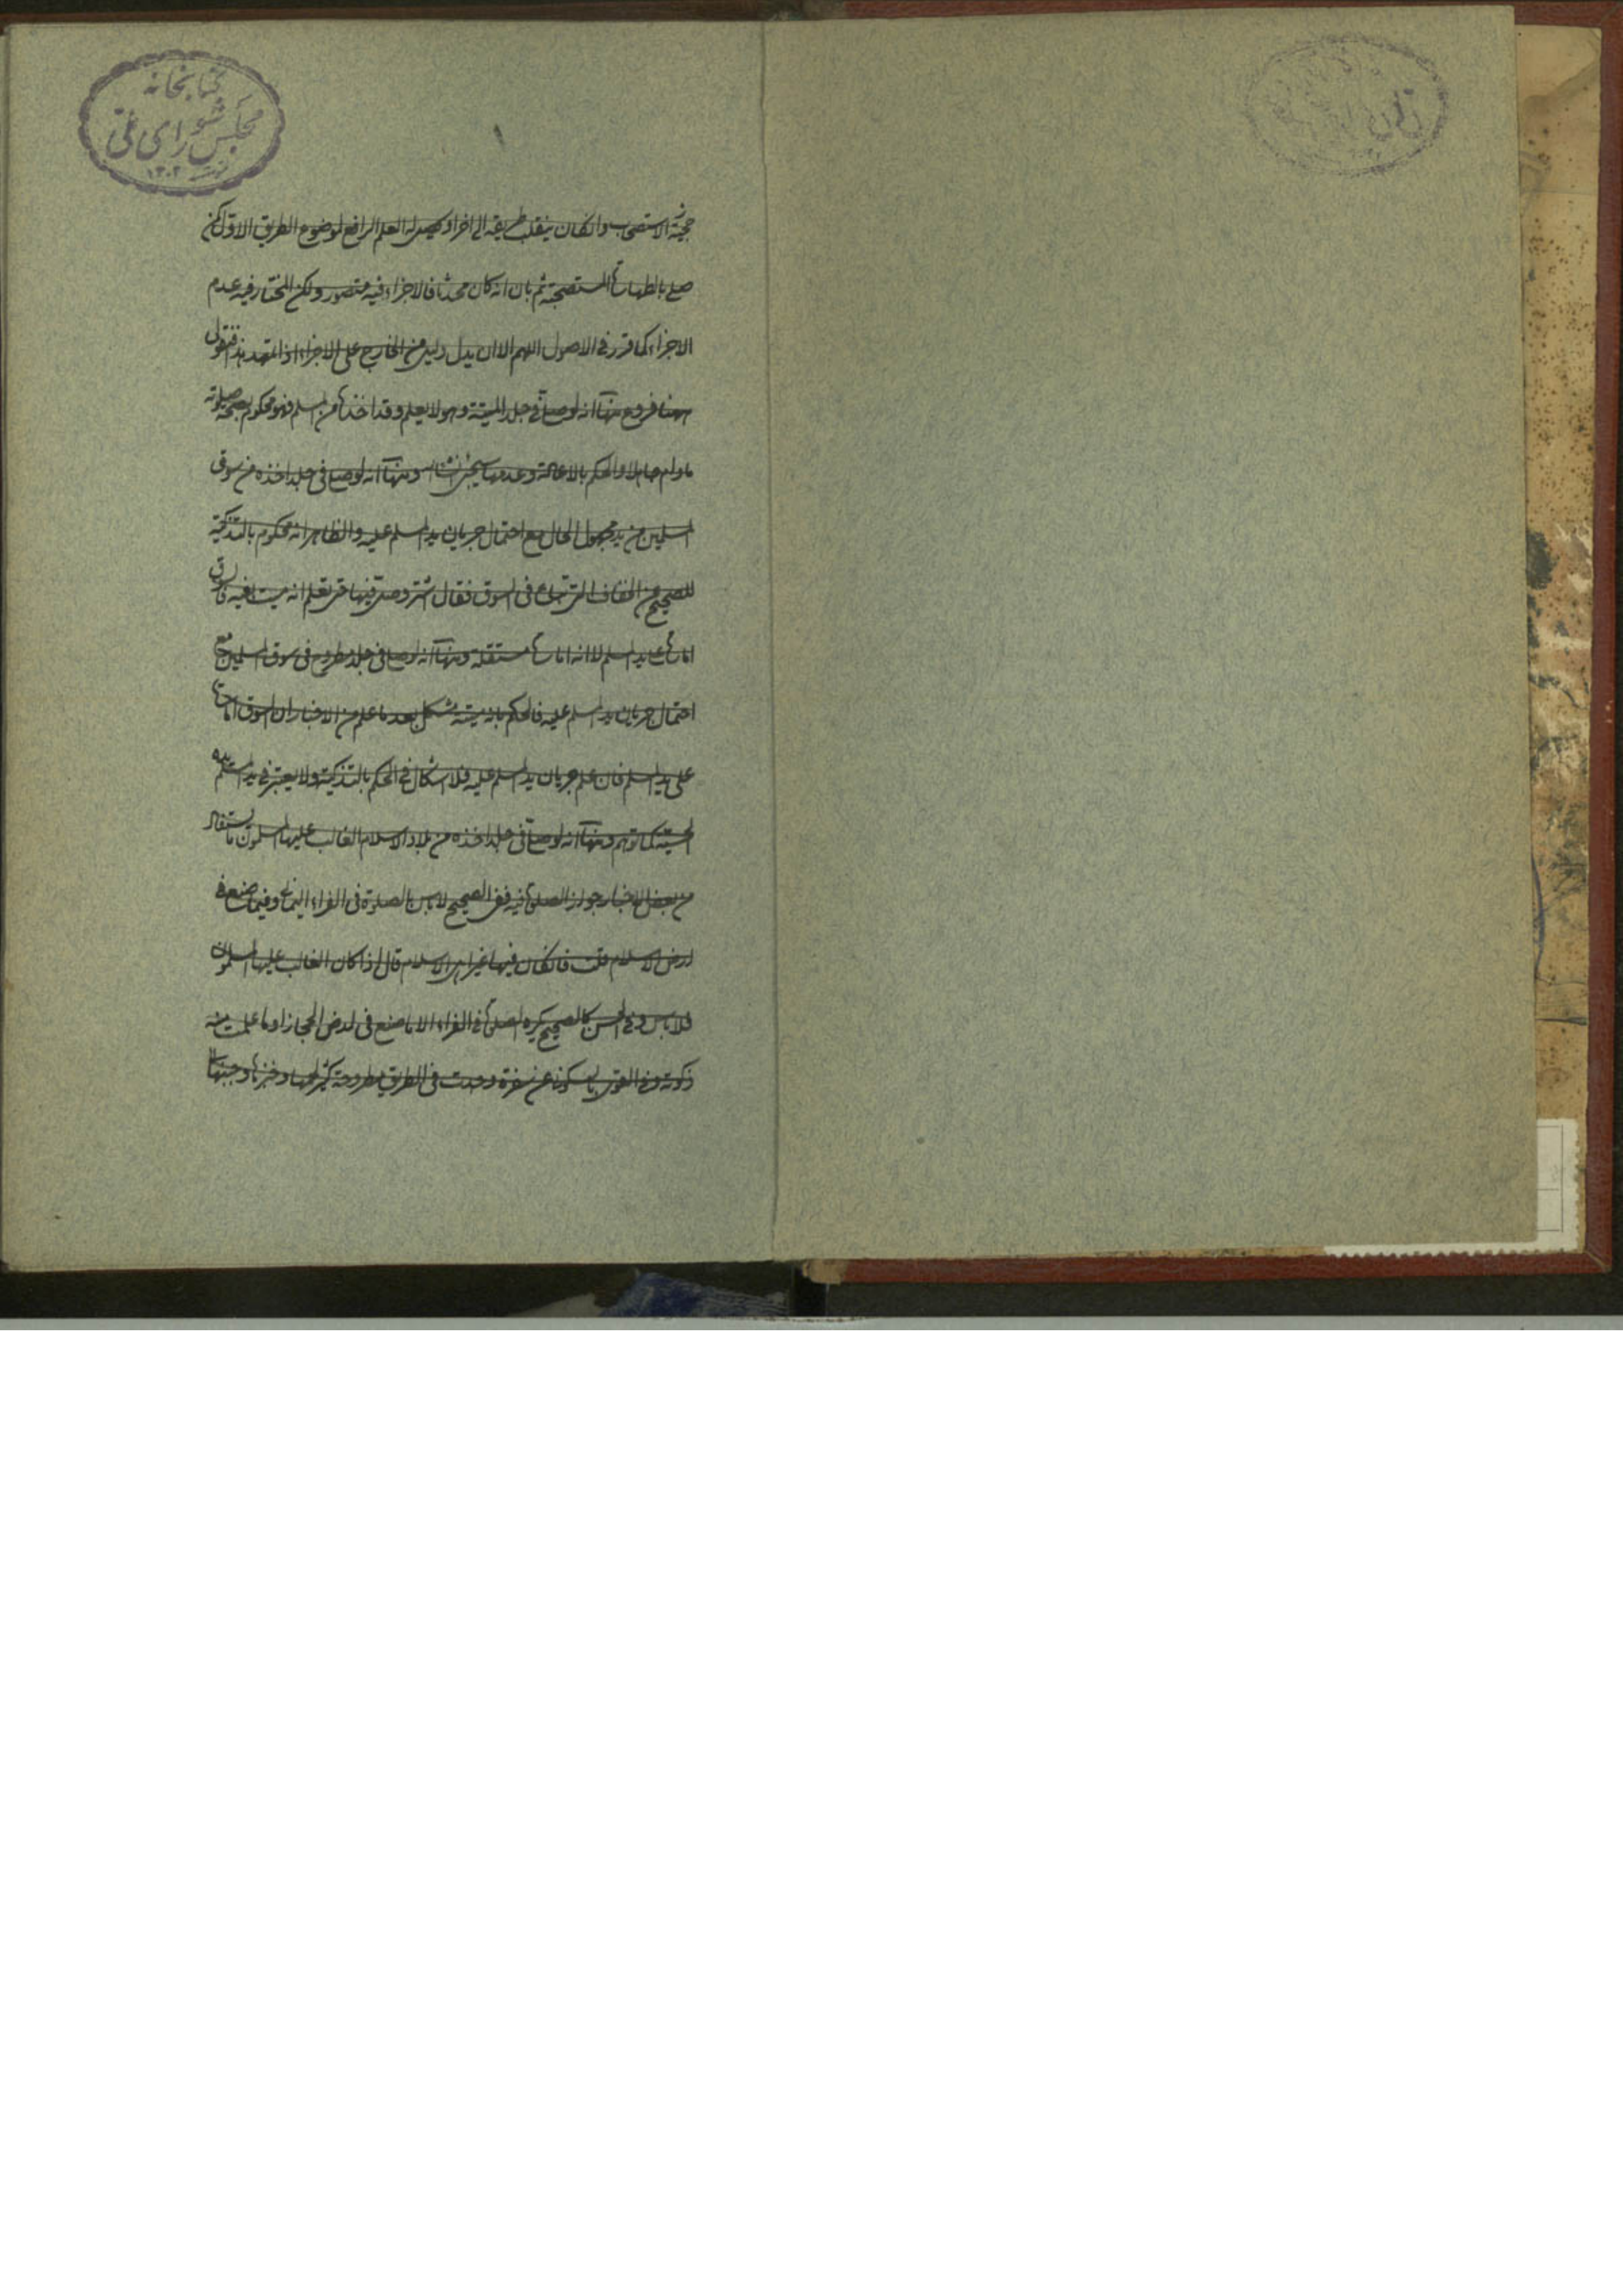 کتابخانه
مجلس شورای ملی
۱۳۰۲
حجیّة الاستصحاب وانکان ینقلب طریقه الی اخر او یحصل له العلم الرافع لموضوع الطریق الاوّل کمن
صلی بالطهارة المستصحبة ثم بان انه کان محدثا فالاجزاء فیه متصور ولکن المختار فیه عدم
الاجزاء کما قرر فی الاصول اللهم الا ان یدل دلیل من الخارج علی الاجزاء اذا تمهد هذا فنقول
ههنا فروع منها انه لو صلی فی جلد المیتة وهو لا یعلم وقد اخذه من المسلم فهو محکوم بصحة صلوته
مادام جاهلا والحکم بالاعادة وعدمها سیجئ انشاء ومنها انه لو صلی فی جلد اخذه من سوق
المسلمین من ید مجهول الحال مع احتمال جریان ید المسلم علیه والظاهر انه محکوم بالتذکیة
للصحیح عن الخفاف التی تباع فی السوق فقال اشتر وصل فیها حتی تعلم انه میت بعینه فالسوق
امارة علی ید المسلم لا انه امارة مستقلة ومنها انه لو صلی فی جلد مطروح فی سوق المسلمین مع
احتمال جریان ید المسلم علیه فالحکم بانه میتة مشکل بعد ما علم من الاخبار ان السوق امارة
علی ید المسلم فان علم جریان ید المسلم علیه فلا اشکال فی الحکم بالتذکیة ولا یعتبر فی ید المسلم یده
الحسیّة کما توهم ومنها انه لو صلی فی جلد اخذه من بلاد الاسلام الغالب علیها المسلمون فالمستفاد
من بعض الاخبار جواز الصلوة فیه ففی الصحیح لا باس بالصلوة فی الفراء الیمانی وفیما صنع فی
ارض الاسلام قلت فانکان فیها غیر اهل الاسلام قال اذا کان الغالب علیها المسلمون
فلا باس وفی الحسن کالصحیح یکره الصلوة فی الفراء الا ما صنع فی ارض الحجاز او ما علمت منه
ذکوة وفی القوی بالسکونی عن سفرة وجدت فی الطریق مطروحة کثیر لحمها وخبزها وجبنها